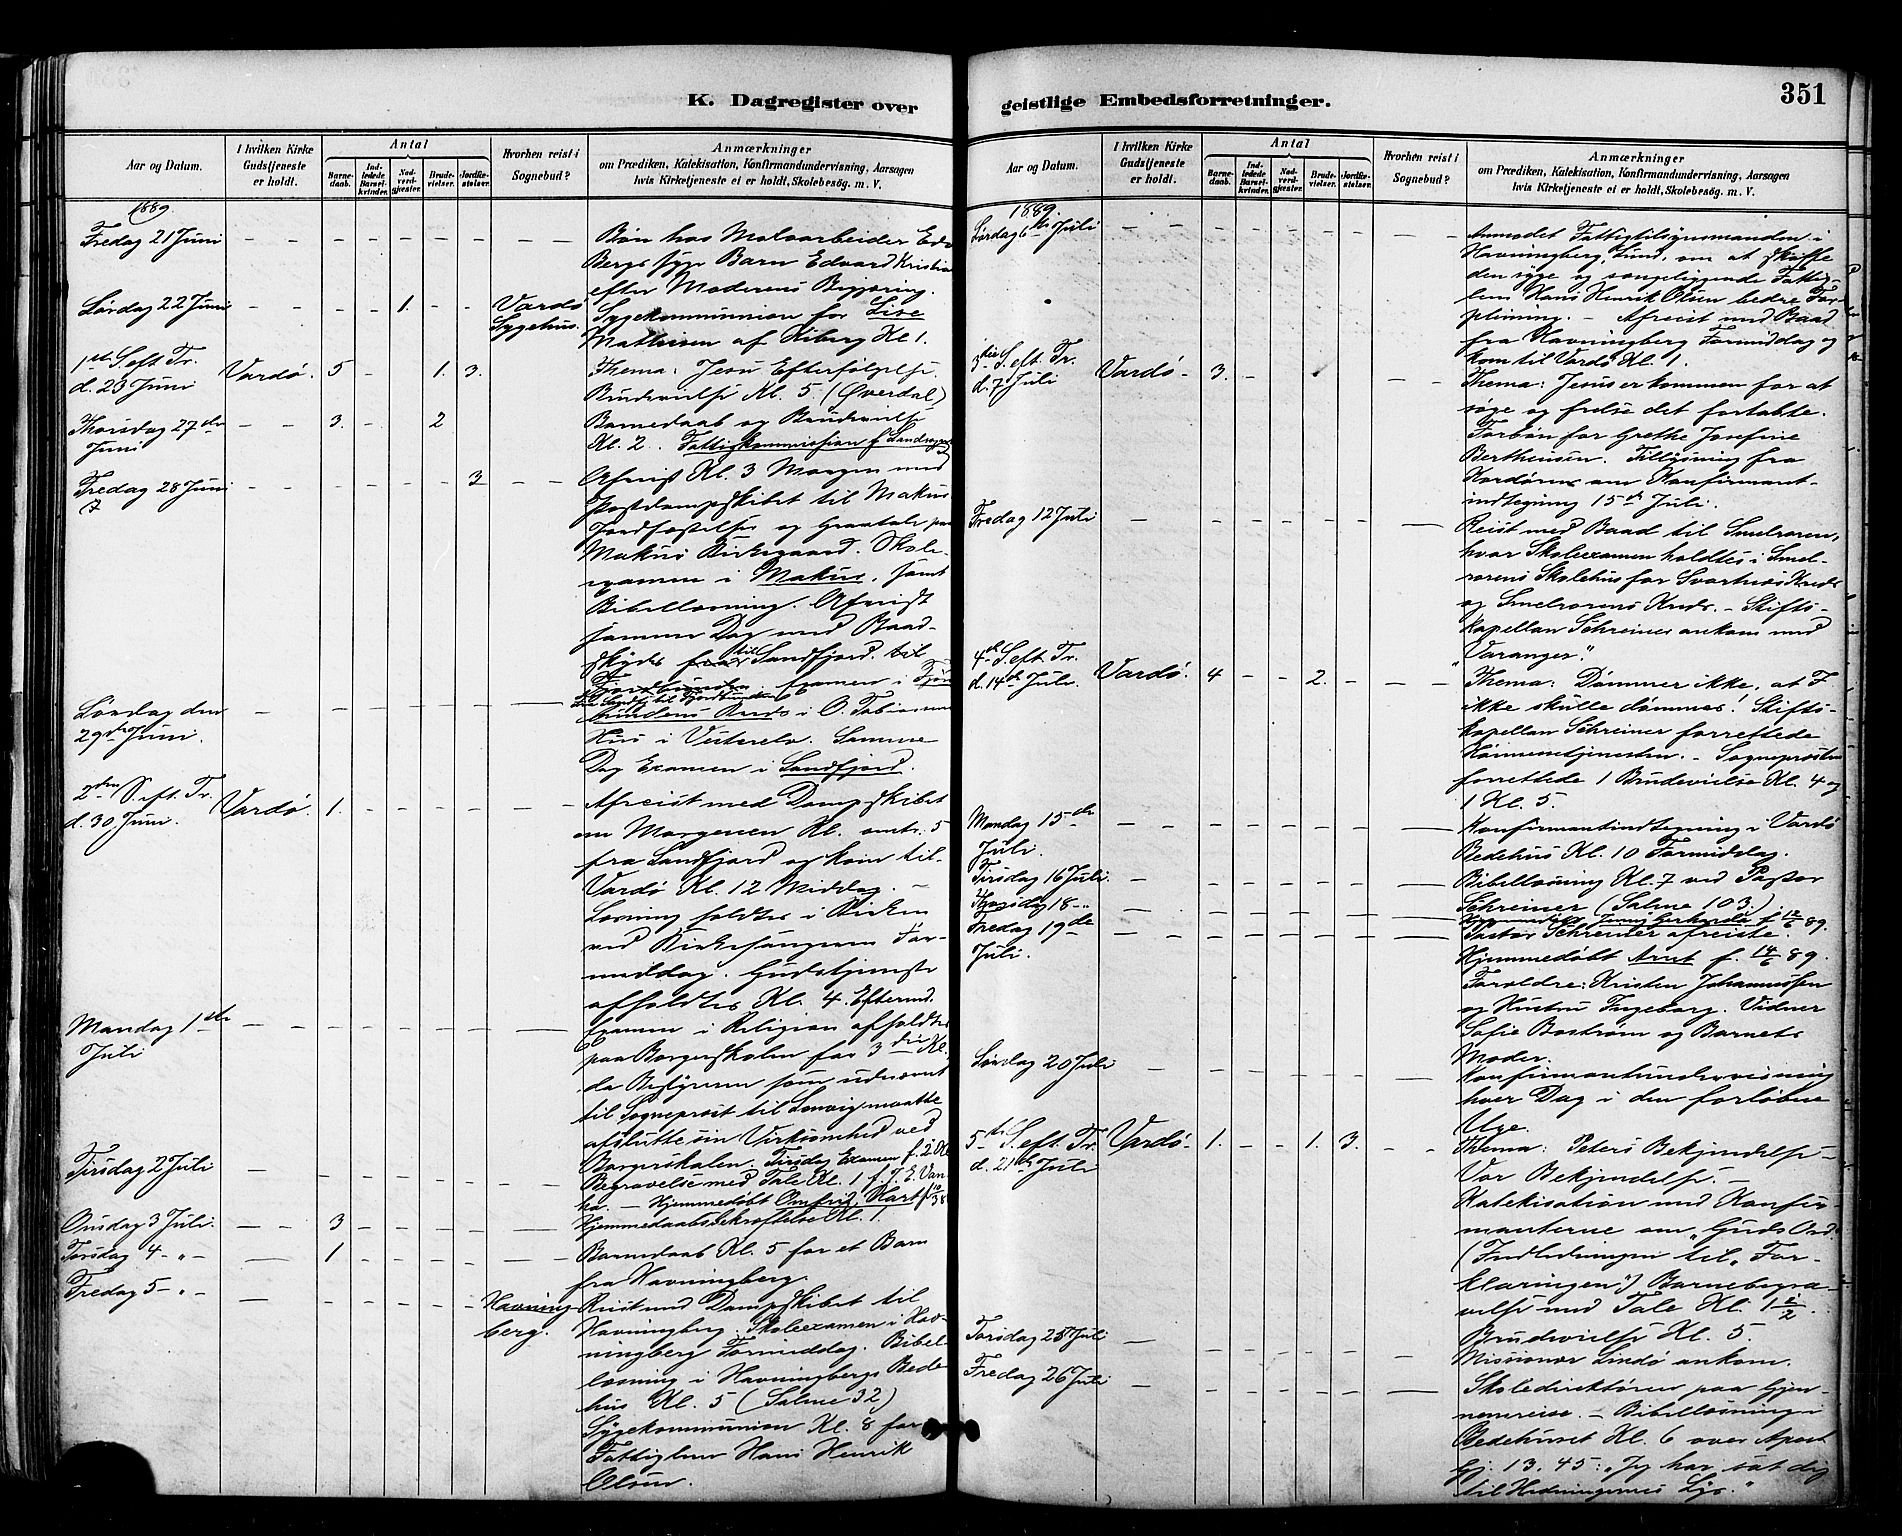 K. Dagregister over
Aar og Datum.
I hvilken Kirke
Gudstjeneste
er holdt.
Antal
Barne-
daab.
Ind-
ledede
Barsel-
kvinder.
Nad-
verd-
gjester.
Brude-
vielser.
Jordfæ-
stelser.
Hvorhen reist i
Sognebud?
Anmærkninger
om Prædiken, Katekisation, Konfirmandundervisning, Aarsagen
hvis Kirketjeneste ei er holdt, Skolebesøg. m. V.
1889.
Fredag 21 Juni
Bøn hos Malerarbeider Edv.
Bergs syge Barn Edvard Kristian
efter Moderens Begjæring.
Lørdag 22 Juni 1. Vardø
Sygehus.
Sygekommunion for Lise
Mathisen af Kiberg Kl 1.
1ste S. eft. Tr.
d. 23 Juni Vardø. 5 1. 3.
Thema: Jesu Efterfølgelse.
Brudevielse Kl. 5. (Øverdal)
Thorsdag 27de
Juni 3. 2
Barnedaab og Brudevielse
Kl. 2. Fattigkommission f. Landsogn
Fredag 28 Juni 3
Afreist Kl. 3 Morgen med
Postdampskibet til Makur.
Jordfæstelse og Gravtale paa
Makurs Kirkegaard. Skole-
examen i Makur, samt
Bibellæsning. Afreist
samme Dag med Baad-
skyds fra til Sandfjord. til
Fjordbunden
fra Sandfj. til Fjordbunden
Lørdag den
29de Juni.
bundens Kreds i O. Tobiasens
Hus i Vesterelv. Samme
Dag Examen i Sandfjord.
2den S. eft. Tr.
d. 30 Juni. Vardø. 1.
Afreist med Dampskibet
om Morgenen Kl. omtr. 5
fra Sandfjord og kom til
Vardø Kl. 12 Middag. –
Læsning holdtes i Kirken
ved Kirkesangeren For-
middag. Gudstjeneste
afholdtes Kl. 4. Efterm.
Mandag 1ste
Juli
Examen i Religion afholdtes
paa Borgerskolen for 3die Kl.
da Bestyreren som udnævnt
til Sogneprest til Lenvig maatte
afslutte sin Virksomhed ved
Borgerskolen. Tirsdag Examen f. 2 Kl
Tirsdag 2 Juli
Begravelse med Tale Kl. 1 f. J. E. Van-
ha. – Hjemmedøbt
Onsdag 3 Juli. 3
Hjemmedaabsbekræftelse Kl. 1.
Torsdag 4 – „ – 1
Barnedaab Kl. 5 for et Barn
fra Havningberg.
Fredag 5 – „ – Havning-
berg.
Reist med Dampskibet til
Havningberg. Skoleexamen i Hav-
ningberg Formiddag. Bibel-
læsning i Havningbergs Bede-
hus Kl. 5 (Salme 32)
Sygekommunion Kl. 8 for
Fattiglem Hans Henrik
Olsen.
geistlige Embedsforretninger.
351
Aar og Datum.
I hvilken Kirke
Gudstjeneste
er holdt.
Antal
Barne-
daab.
Ind-
ledede
Barsel-
kvinder.
Nad-
verd-
gjester.
Brude-
vielser.
Jordfæ-
stelser.
Hvorhen reist i
Sognebud?
Anmærkninger
om Prædiken, Katekisation, Konfirmandundervisning, Aarsagen
hvis Kirketjeneste ei er holdt, Skolebesøg. m. V.
1889.
Lørdag 6te Juli
Anmodet Fattigtilsynsmanden i
Havningberg, Lund, om at skaffe
den syge og sengeliggende Fattig-
lem Hans Henrik Olsen bedre For-
pleining. – Afreist med Baad
fra Havningberg Formiddag og
kom til Vardø Kl. 1.
3die S. eft. Tr.
d. 7 Juli Vardø 3.
Thema: Jesus er kommen for at
søge og frelse det fortabte.
Forbøn for Grethe Josefine
Berthensen. Tillysning fra
Kordøren om Konfirmant-
indtegning 15de Juli.
Fredag 12 Juli
Reist med Baad til Smelroren,
hvor Skoleexamen holdtes i Smel-
rorens Skolehus for Svartnæs Kreds
og Smelrorens Kreds. – Stifts-
kapellan Schreiner ankom med
„Varanger“.
4de S. eft. Tr.
d. 14de Juli. Vardø. 4 2.
Thema: Dømmer ikke, at I
ikke skulle dømmes! Stifts-
kapellan Schreiner forrettede
Høimessetjenesten. – Sognepresten
forrettede 1 Brudevielse Kl. 4 og
1 Kl. 5.
Mandag 15de
Juli.
Konfirmantindtegning i Vardø
Bedehus Kl. 10 Formiddag.
Tirsdag 16 Juli.
Bibellæsning Kl. 7 ved Pastor
Schreiner (Salme 103.)
Thorsdag 18 – „
Hjemmedøbt
Fredag 19de
Juli.
Pastor Schreiner afreiste.
Hjemmedøbt Arnt f. 14/6 89.
Forældre: Kristen Johannessen
og Hustru Ingeborg. Vidner
Sofie Bostrøm og Barnets
Moder.
Lørdag 20 Juli
Konfirmantundervisning
hver Dag i den forløbne
Uge.
5te S. eft. Tr.
d. 21de Juli Vardø 1. 1. 3.
Thema: Peters Bekjendelse
Vor Bekjendelse. –
Katekisation med Konfir-
manterne om „Guds Ord“
(Indledningen til „For-
klaringen“) Barnebegra-
velse med Tale Kl. 1 1/2.
Brudevielse Kl. 5.
Torsdag 25 Juli
Missionær Lindø ankom.
Fredag 26 Juli
Skoledirektøren paa Gjen-
nemreise. – Bibellæsning i
Bedehuset Kl. 6 over Apost
Gj. 13. 45: „Jeg har sat dig
til Hedningernes Lys.“